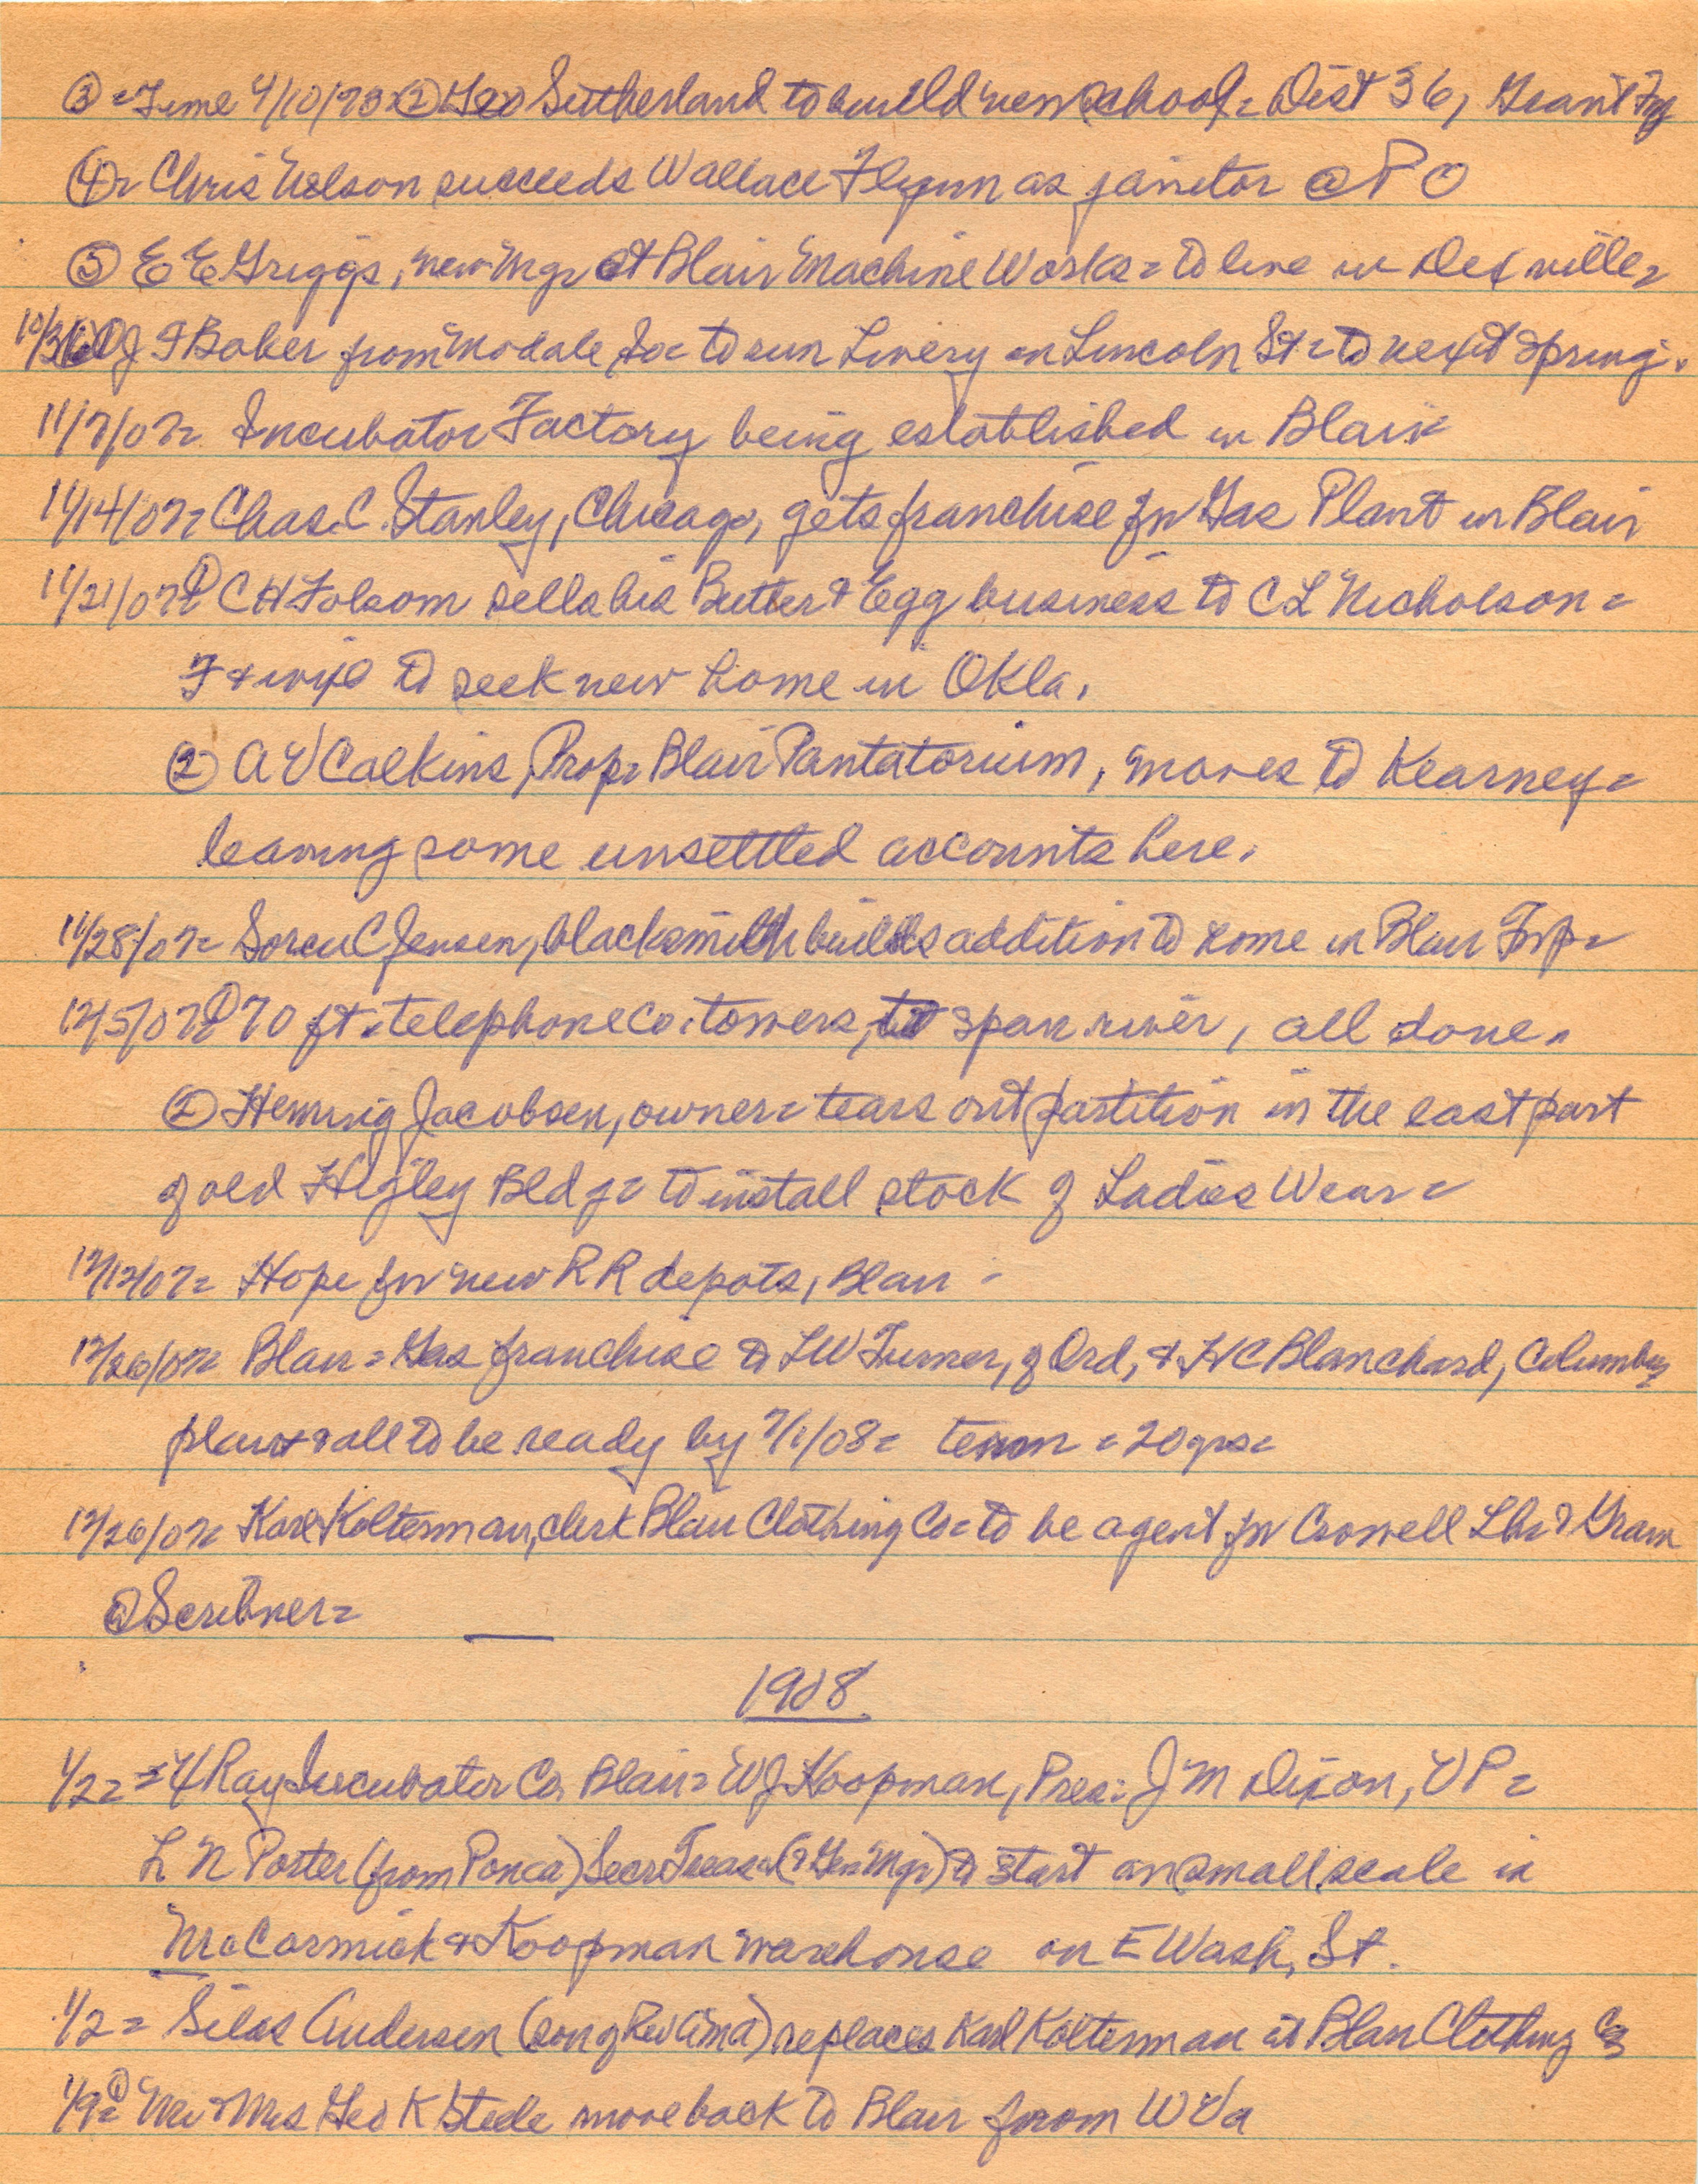 ③ = Time 4/10/93 = ② Geo Sutherland to build new school = Dist 36, Grant Twp
④ = Chris Nelson succeeds Wallace Flynn as janitor @ P O
⑤ E E Griggs, new Mgr at Blair Machine Works = to live in
10/31 ① J F Baker from Modale Ia = to run Livery on Lincoln St = to next spring.
11/7/07 = Incubator Factory being established in Blair =
11/14/07 = Chas. C. Stanley, Chicago, gets franchise for Gas Plant in Blair
11/21/07 = ① C H Folsom sells his Butter & Egg business to C L Nicholson =
F & wife to seek new home in Okla.
② A V Calkins, Prop = Blair Pantatorium, moves to Kearney =
leaving some unsettled accounts here.
11/28/07 = Soren C Jensen, blacksmith builds addition to home in Blair Twp =
12/5/07 = ① 70 ft = telephone co. towers, to span river, all done.
② Henning Jacobsen, owner = tears out partition in the east part
of old Higley Bldg = to install stock of Ladies Wear =
12/12/07 = Hope for new R R depots, Blair -
12/26/07 = Blair = Gas franchise to L W Turner, of Ord, & H C Blanchard, Columbus
plant & all to be ready by 7/1/08 = term = 20 yrs =
12/26/07 = Karl Kolterman, clerk Blair Clothing Co = to be agent for Crowell Lbr & Grain
@ Scribner =
1908
1/2 = = X Ray Incubator Co. Blair = W J Koopman, Pres: J M Dixon, V P =
L N Porter (from Ponca) Secr Treas = (& Gen Mgr) to start on small scale in
McCormick & Koopman warehouse on E Wash. St.
1/2 = Silas Andersen (son of Rev) replaces Karl Kolterman at Blair Clothing Co
1/9 = ① Mr & Mrs Geo K Steele move back to Blair from W Va